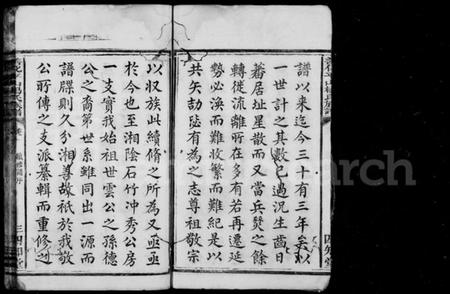 譜以來迄今三十有三年矣以
一世計之其數已過況生齒日
蕃居址星散而又當兵燹之餘
轉徙流離所在多有若再遷延
勢必渙而難收繁而難紀是以
共矢劼毖有為之志尊祖敬宗
以收族此續脩之所為又亟亟
於今也至湘陰石竹冲秀公房
一支實我始祖世雲公之孫德
公之裔第世系雖同出一源而
譜牒則久分湘善故祇於我敬
公所傳之支派纂輯而重修之
四知堂